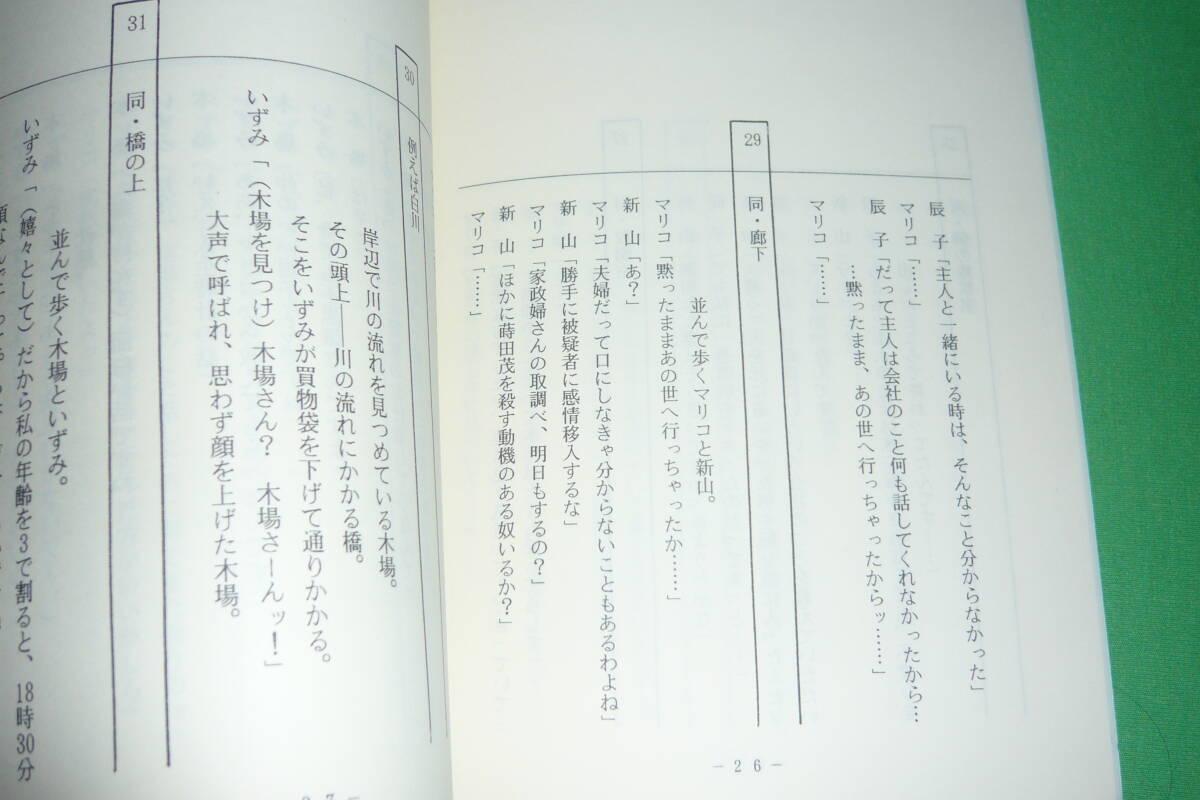 辰　子「主人と一緒にいる時は、そんなこと分からなかった」
マリコ「……」
辰　子「だって主人は会社のこと何も話してくれなかったから…
…黙ったまま、あの世へ行っちゃったからッ……」
マリコ「……」
29　同・廊下
並んで歩くマリコと新山。
マリコ「黙ったままあの世へ行っちゃったか……」
新　山「あ？」
マリコ「夫婦だって口にしなきゃ分からないこともあるわよね」
新　山「勝手に被疑者に感情移入するな」
マリコ「家政婦さんの取調べ、明日もするの？」
新　山「ほかに蒔田茂を殺す動機のある奴いるか？」
マリコ「……」
－２６－
30　例えば白川
岸辺で川の流れを見つめている木場。
その頭上――川の流れにかかる橋。
そこをいずみが買物袋を下げて通りかかる。
いずみ「（木場を見つけ）木場さん？　木場さーんッ！」
大声で呼ばれ、思わず顔を上げた木場。
31　同・橋の上
並んで歩く木場といずみ。
いずみ「（嬉々として）だから私の年齢を３で割ると、18時30分